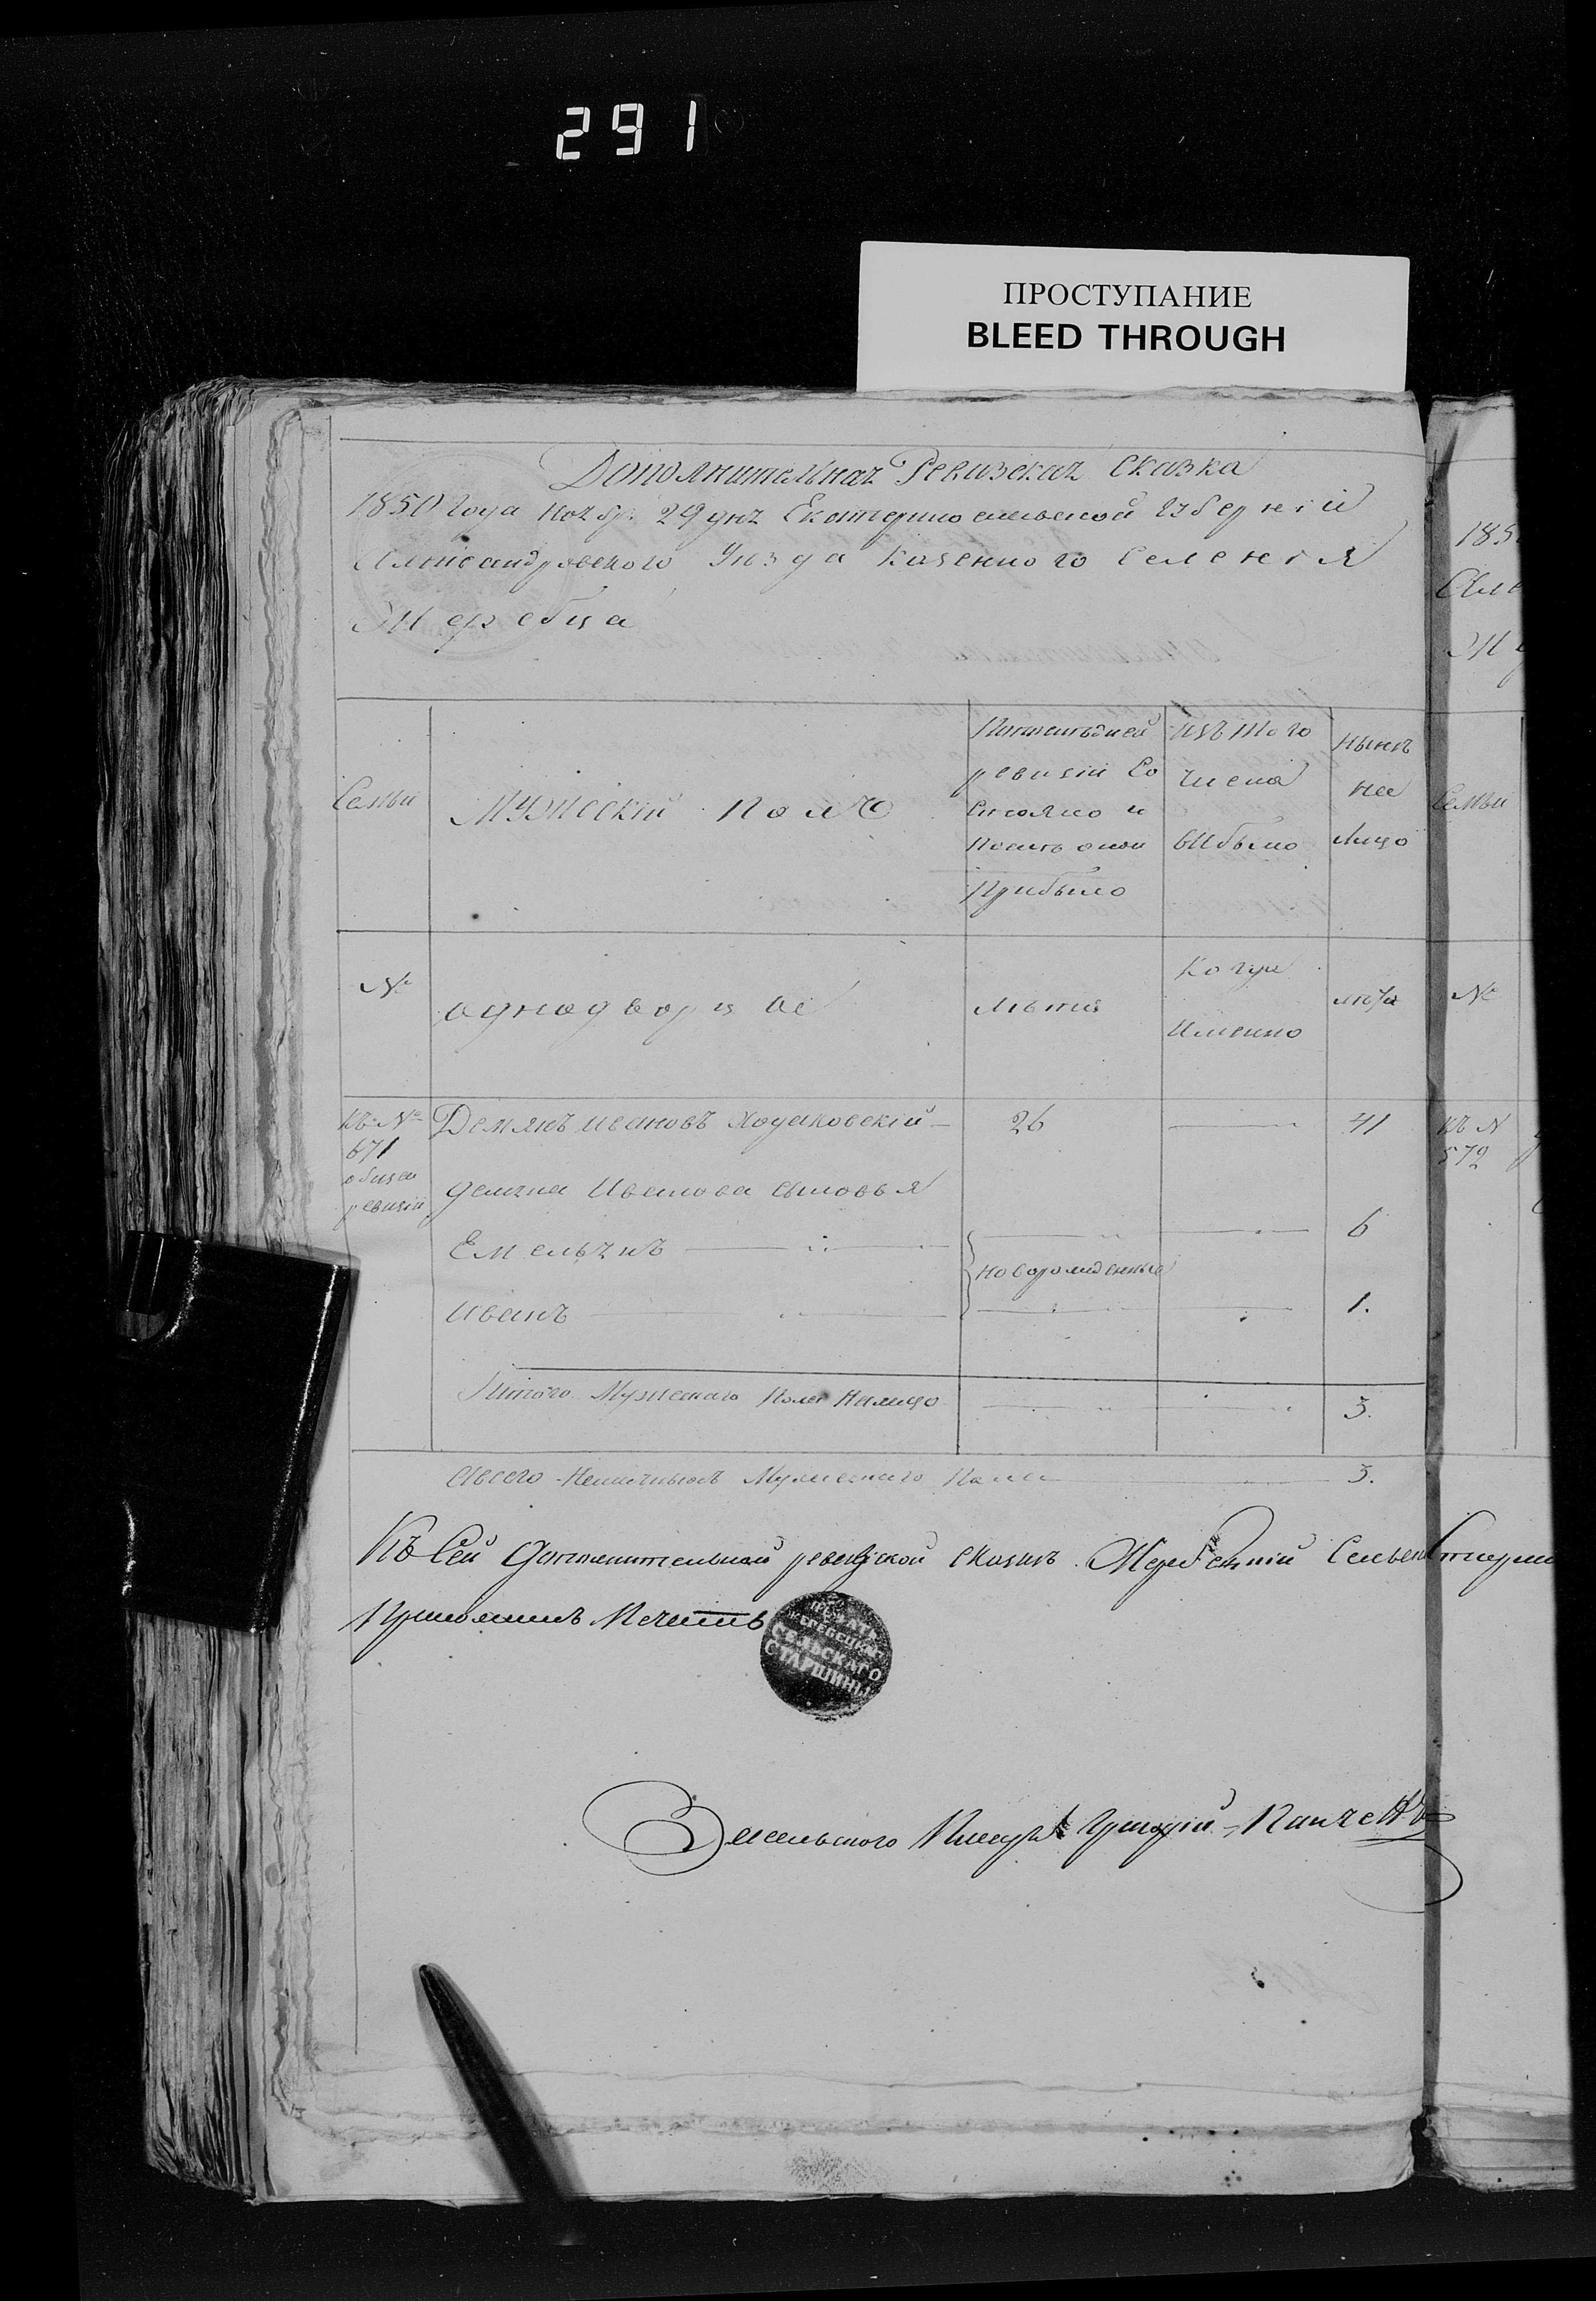 291
ПРОСТУПАНИЕ
BLEED THROUGH
Дополнительная Ревизская Сказка
1850 года Ноябр: 29 дня Екатеринославской Губерніи
Александровского Уезда Казенного Селенія
Жеребца
Семьи
Мужескій Полъ
По последней
ревизіи Со
стояло и
после оной
Прибыло
изъ того
числа
выбыло
ныне
на
лицо
Семьи
№
однодворцов
лета
Когда
именно
лета
№
Къ №
671
общей
ревизіи
Демянъ Ивановъ Ходаковскій
26
41
Къ №
572
демяна Иванова сыновья
Емельянъ
6
новорожденные
Иванъ
1.
Итого Мужескаго Пола Налицо
3.
Всего Наличныхъ Мужескаго Пола
3.
Къ Сей дополнительной ревизской сказке Жеребецкій Сельскій
Приложилъ Печать
ПЕЧАТЬ
ЖЕРЕБЕЦКАГО
СЕЛЬСКАГО
СТАРШИНЫ
Сельского Писарь Григорій
185
Але
Же